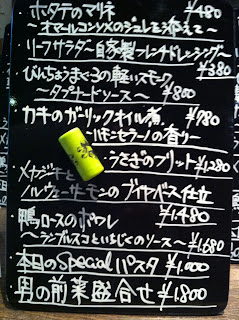 ホタテのマリネ ¥480
〜オマールコンソメのジュレを添えて〜
リーフサラダ〜自家製フレンチドレッシング〜
¥380
びんちょうまぐろの軽いスモーク
〜タプナードソース〜 ¥800
カキのガーリックオイル煮 ¥780
〜ハモンセラーノの香り〜
うさぎのフリット ¥1,280
メカジキと
ノルウェーサーモンのブイヤベース仕立
¥1,480
鴨ロースのポワレ
〜ランブルスコといちじくのソース〜 ¥1,680
本日のSpecialパスタ ¥1,000
男の前菜盛合せ ¥1,800